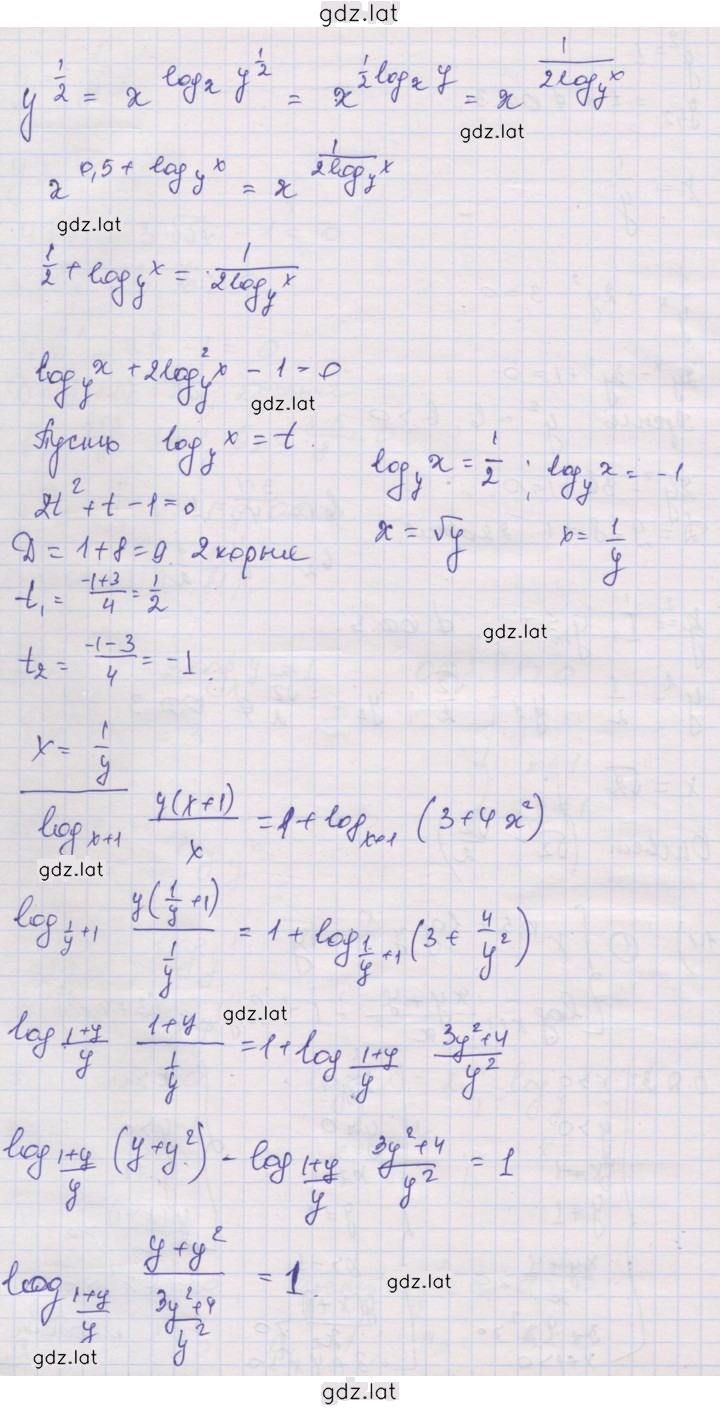 gdz.lat
y^(1/2) = x^(log_x y^(1/2)) = x^(1/2 log_x y) = x^(1/(2log_y x))
gdz.lat
x^(0,5 + log_y x) = x^(1/(2log_y x))
gdz.lat
1/2 + log_y x = 1/(2log_y x)
log_y x + 2log²_y x - 1 = 0
gdz.lat
Пусть log_y x = t
log_y x = 1/2 ; log_y x = -1
2t² + t - 1 = 0
x = √y x = 1/y
D = 1+8 = 9. 2 корня
t₁ = (-1+3)/4 = 1/2
gdz.lat
t₂ = (-1-3)/4 = -1.
x = 1/y
log_(x+1) (y(x+1))/x = 1 + log_(x+1) (3+4x²)
gdz.lat
log_(1/y+1) (y(1/y+1))/(1/y) = 1 + log_(1/y+1) (3 + 4/y²)
gdz.lat
log_((1+y)/y) (1+y)/(1/y) = 1 + log_((1+y)/y) (3y²+4)/y²
log_((1+y)/y) (y+y²) - log_((1+y)/y) (3y²+4)/y² = 1
log_((1+y)/y) (y+y²)/((3y²+4)/y²) = 1.
gdz.lat
gdz.lat
gdz.lat